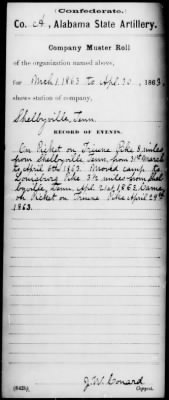 (Confederate.)
Co. A, Alabama State Artillery.
Company Muster Roll
of the organization named above,
for Mch 1, 1863 to Apl. 30, 1863,
shows station of company,
Shelbyville, Tenn.
RECORD OF EVENTS.
On Picket on Triune Pike 8 miles
from Shelbyville Tenn. from 31st March
to April 6th 1863. Moved camp to
Lewisburg Pike 3½ miles from Shel-
byville, Tenn, Apl. 21st, 1863. Came
on Picket on Triune Pike April 29th
1863.
J. W. Conard
Copyist.